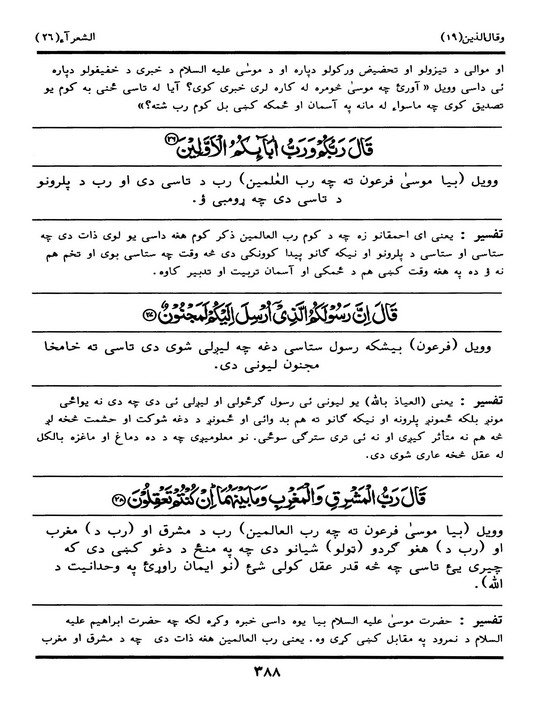 وقال الذین(۱۹) الشعرآء(۲۶)
او موالی د تیزولو او تحضیض ورکولو دپاره او د موسیٰ علیه السلام د خبری د خفیفولو دپاره
ئی داسی وویل «آورئ چه موسیٰ څومره له کاره لری خبری کوی؟ آیا له تاسی څنی به کوم یو
تصدیق کوی چه ماسواء له مانه په آسمان او ځمکه کښی بل کوم رب شته؟»
قَالَ رَبُّكُمْ وَرَبُّ اٰبَآىِٕكُمُ الْاَوَّلِيْنَ ﴿۲۶﴾
وویل (بیا موسیٰ فرعون ته چه رب العٰلمین) رب د تاسی دی او رب د پلرونو
د تاسی دی چه ړومبی ؤ.
تفسیر : یعنی ای احمقانو زه چه د کوم رب العالمین ذکر کوم هغه داسی یو لوی ذات دی چه
ستاسی او ستاسی د پلرونو او نیکه گانو پیدا کوونکی دی څه وقت چه ستاسی بوی او تخم هم
نه ؤ ده په هغه وقت کښی هم د ځمکی او آسمان تربیت او تدبیر کاوه.
قَالَ اِنَّ رَسُوْلَكُمُ الَّذِيْٓ اُرْسِلَ اِلَيْكُمْ لَمَجْنُوْنٌ ﴿۲۷﴾
وویل (فرعون) بیشکه رسول ستاسی دغه چه لیږلی شوی دی تاسی ته خامخا
مجنون لیونی دی.
تفسیر : یعنی (العیاذ بالله) یو لیونی ئی رسول گرځولی او لیږلی ئی دی چه دی نه یواځی
مونږ بلکه ځمونږ پلرونه او نیکه گانو ته هم بد وائی او ځمونږ د دغه شوکت او حشمت څخه لږ
څه هم نه متأثر کیږی او نه ئی تری سترگی سوځی. نو معلومیږی چه د ده دماغ او ماغزه بالکل
له عقل څخه عاری شوی دی.
قَالَ رَبُّ الْمَشْرِقِ وَالْمَغْرِبِ وَمَا بَيْنَهُمَا اِنْ كُنْتُمْ تَعْقِلُوْنَ ﴿۲۸﴾
وویل (بیا موسیٰ فرعون ته چه رب العالمین) رب د مشرق او (رب د) مغرب
او (رب د) هغو گردو (ټولو) شیانو دی چه په منځ د دغو کښی دی که
چیری یئ تاسی چه څه قدر عقل کولی شئ (نو ایمان راوړئ په وحدانیت د
الله).
تفسیر : حضرت موسیٰ علیه السلام بیا یوه داسی خبره وکړه لکه چه حضرت ابراهیم علیه
السلام د نمرود په مقابل کښی کړی وه. یعنی رب العالمین هغه ذات دی چه د مشرق او مغرب
۳۸۸